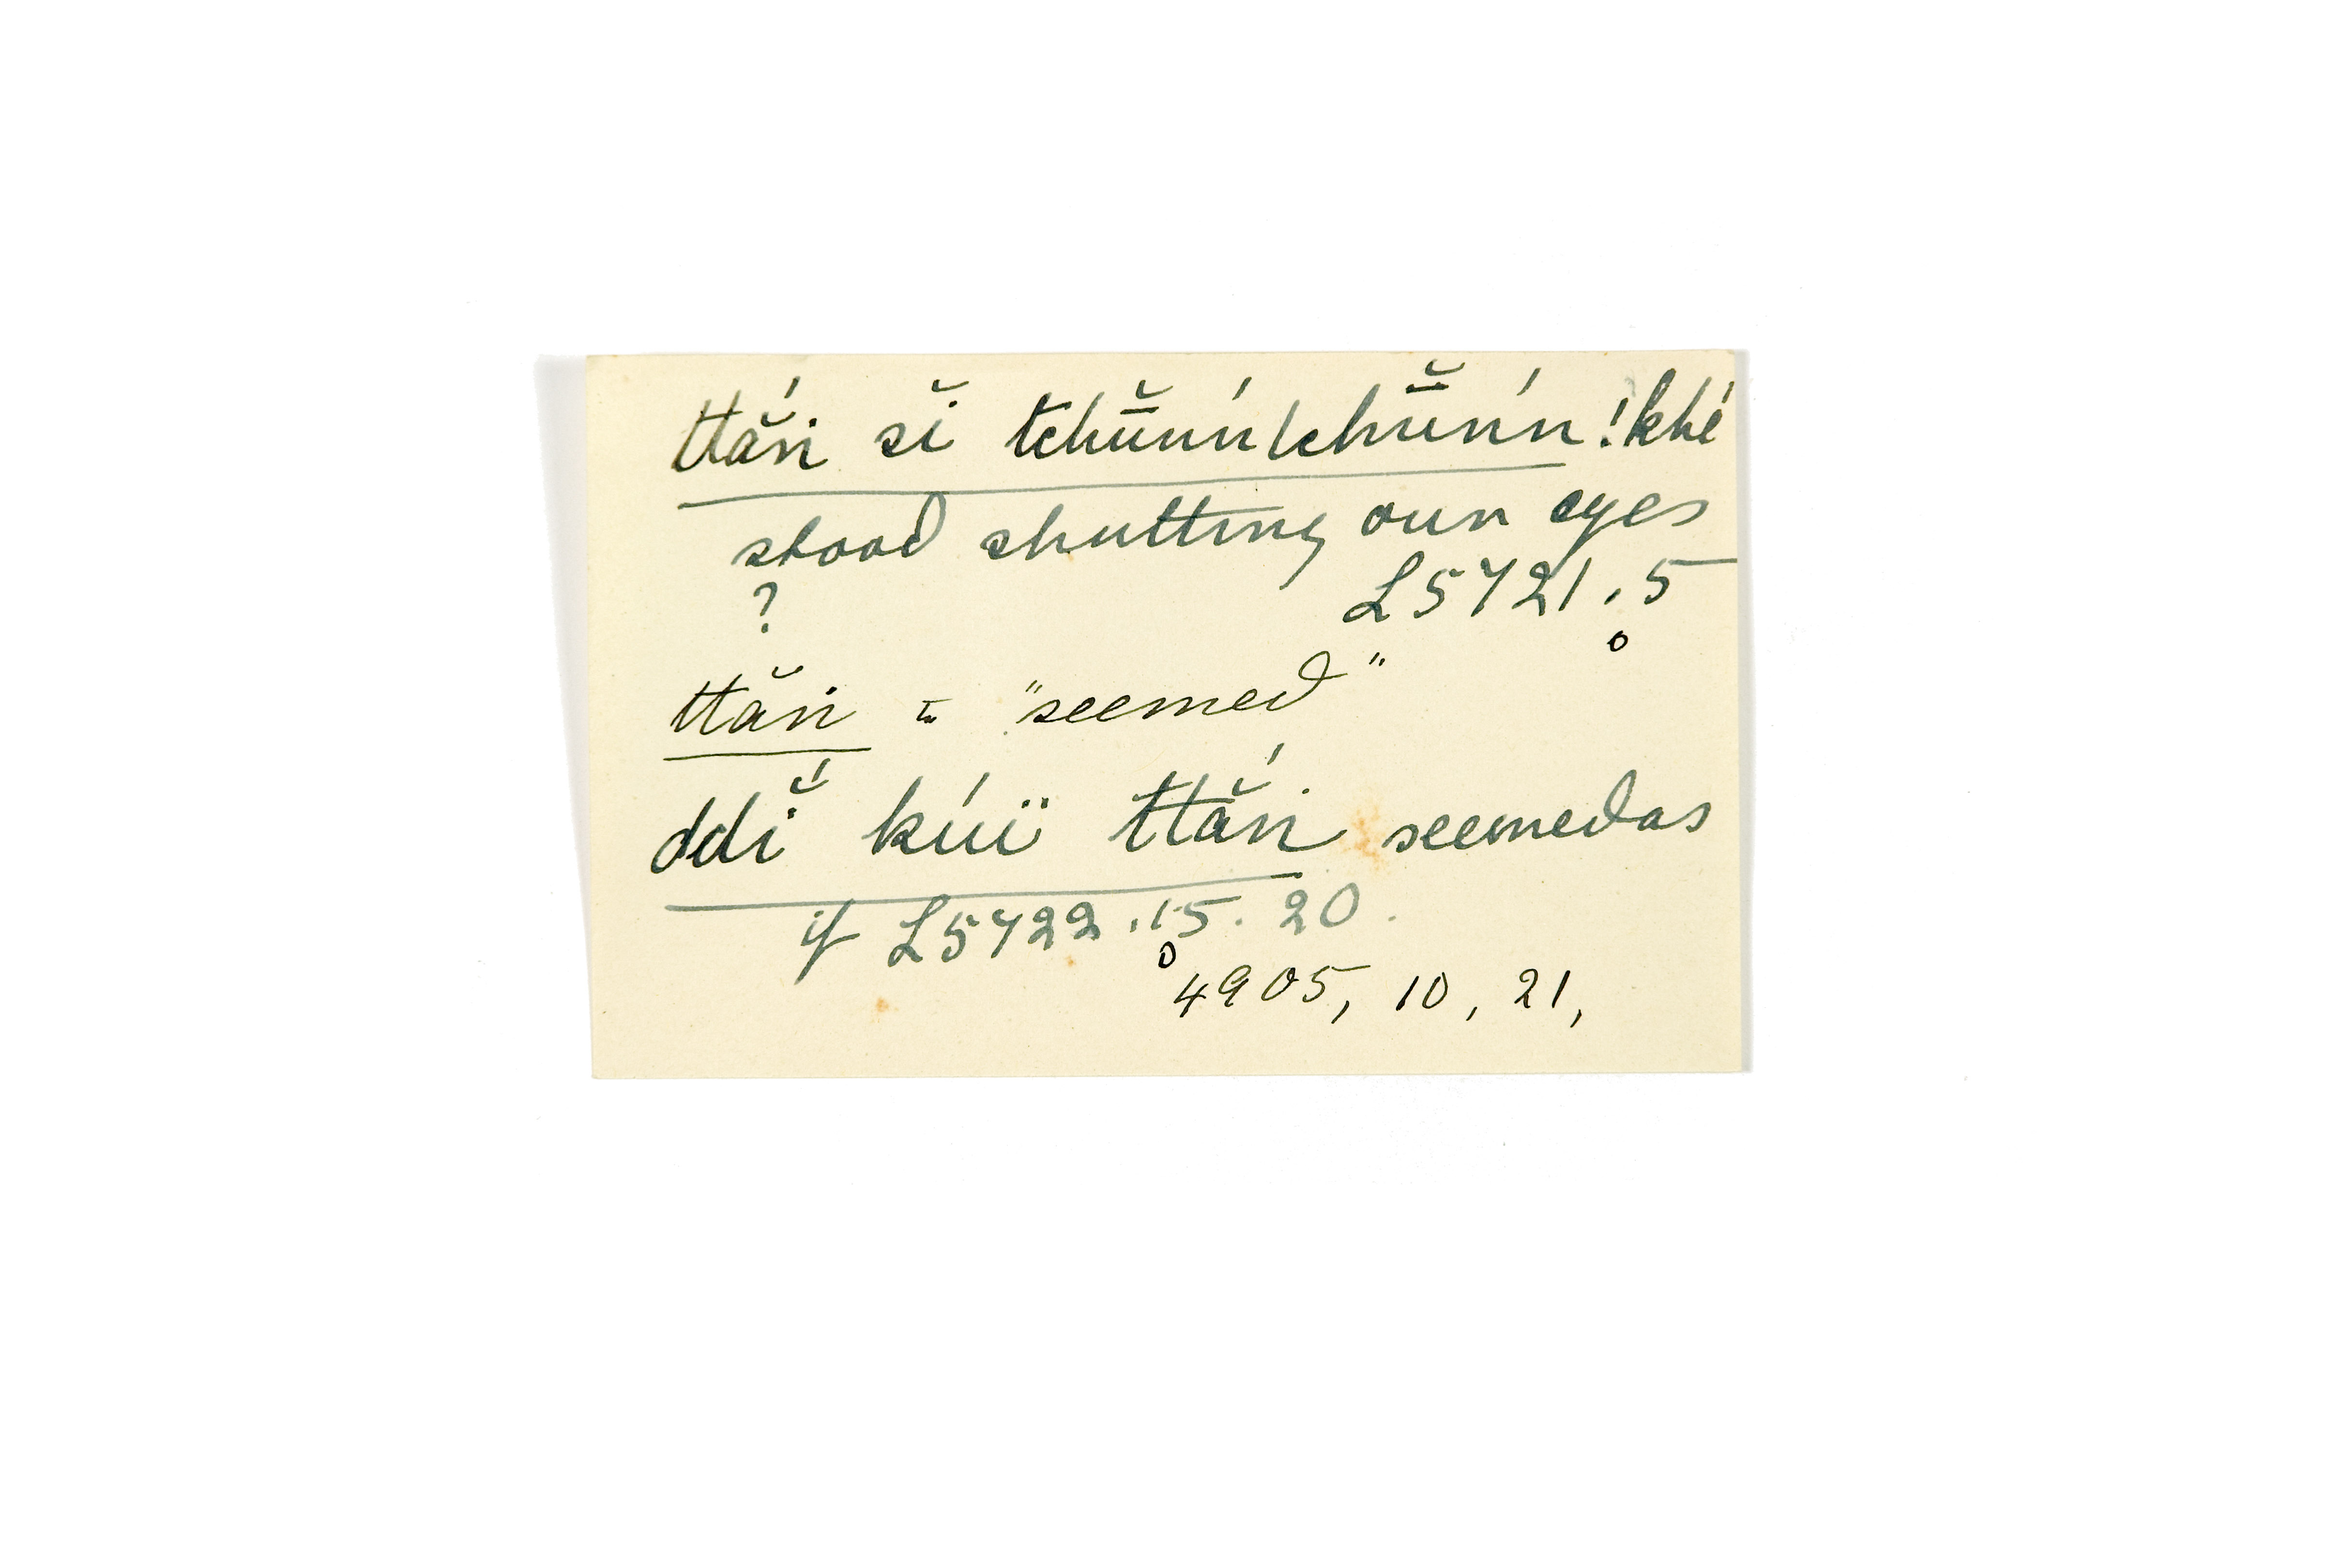 ttắn sĭ tchū̆ń/chū̆ń'n !khé
stood shutting our eyes
? L5721.5
o
ttăn = "seemed"
ddĭ́ kúï ttắn seemed as
if L5722.15.20.
o
4905, 10, 21,